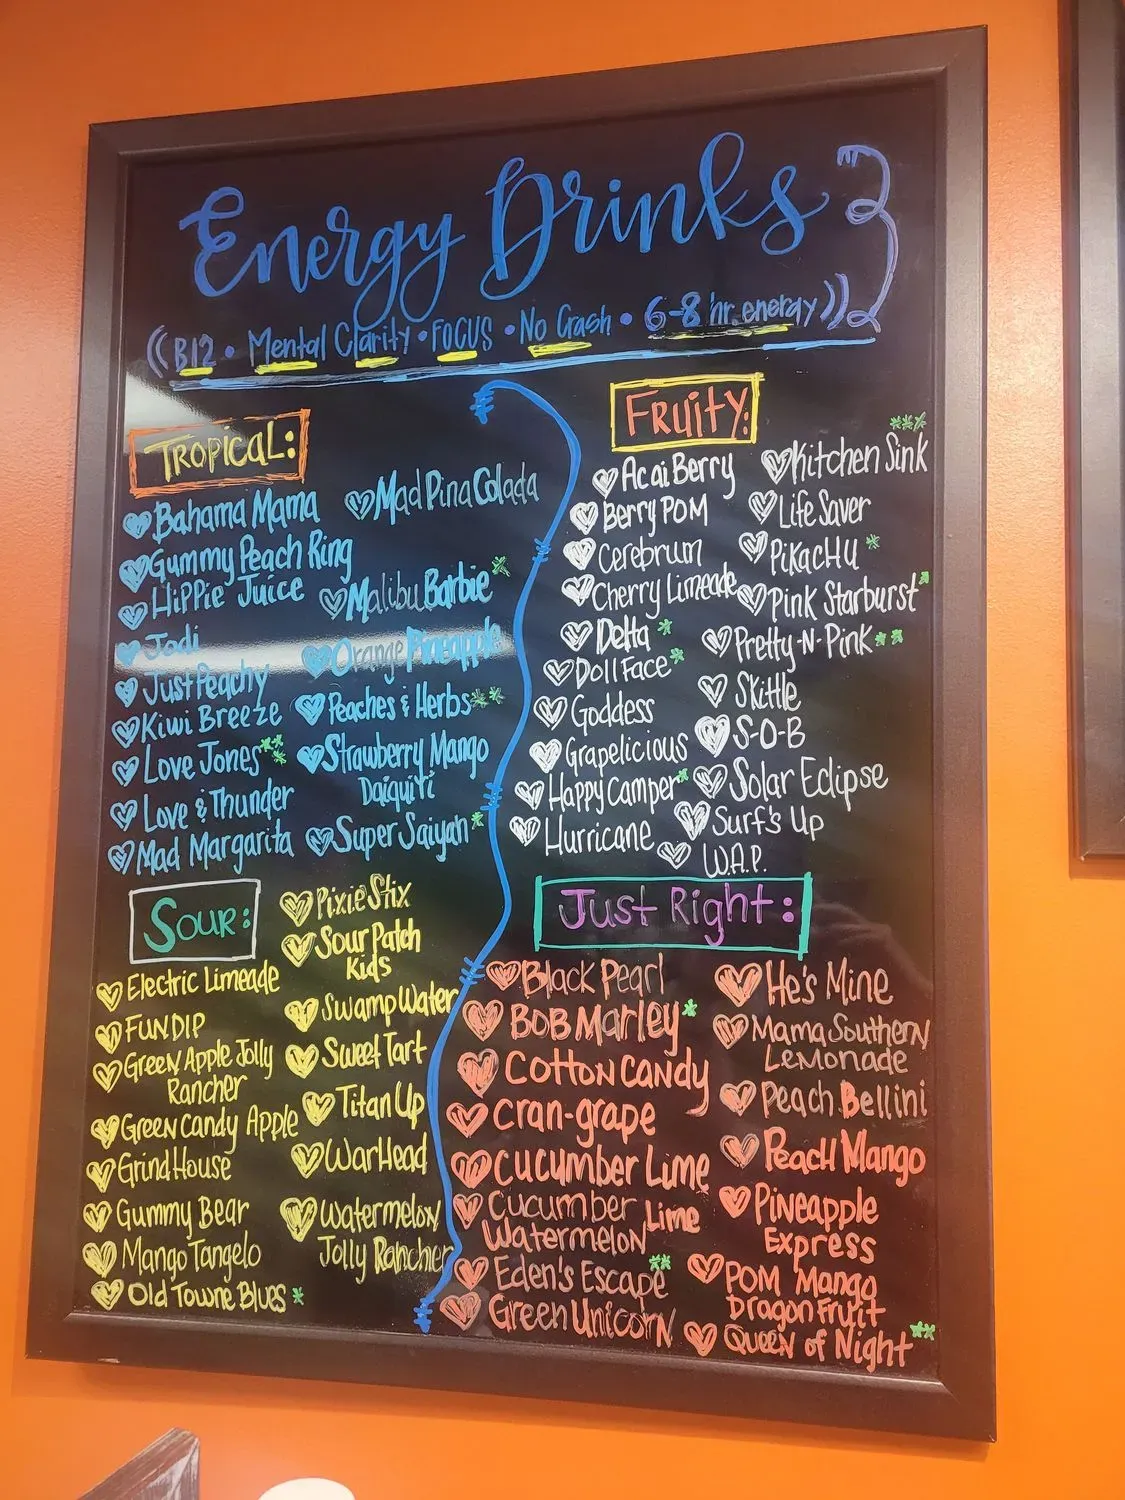 Energy Drinks
((B12 • Mental Clarity • FOCUS • No Crash • 6-8 hr. energy))
TROPICAL:
Bahama Mama
Gummy Peach Ring
HiPPie Juice
Jodi
Just Peachy
Kiwi Breeze
Love Jones**
Love & Thunder
Mad Margarita
Mad Pina Colada
Malibu Barbie*
Orange Pineapple
Peaches & Herbs**
Strawberry Mango
Daiquiri
Super Saiyan*
FRUITY:
Acai Berry
Berry POM
Cerebrum
Cherry Limeade
Delta*
Doll Face*
Goddess
Grapelicious
Happy Camper*
Hurricane
***
Kitchen Sink
Life Saver
PiKacHU*
Pink Starburst*
Pretty-N-Pink**
Skittle
S-O-B
Solar Eclipse
Surf's Up
W.A.P.
SOUR:
Electric Limeade
FUN DIP
Green Apple Jolly
Rancher
Green Candy Apple
Grind House
Gummy Bear
Mango Tangelo
Old Towne Blues*
Pixie Stix
Sour Patch
Kids
Swamp Water
Sweet Tart
Titan Up
WarHead
Watermelon
Jolly Rancher
Just Right:
Black Pearl
BOB MARLEY*
COTTON CANDY
Cran-grape
CUCUMBER LIME
Cucumber Lime
Watermelon
Eden's Escape**
Green Unicorn
He's Mine
Mama Southern
LEMONADE
Peach Bellini
PEACH MANGO
PINEAPPLE
EXPRESS
POM Mango
Dragon Fruit
Queen of Night**